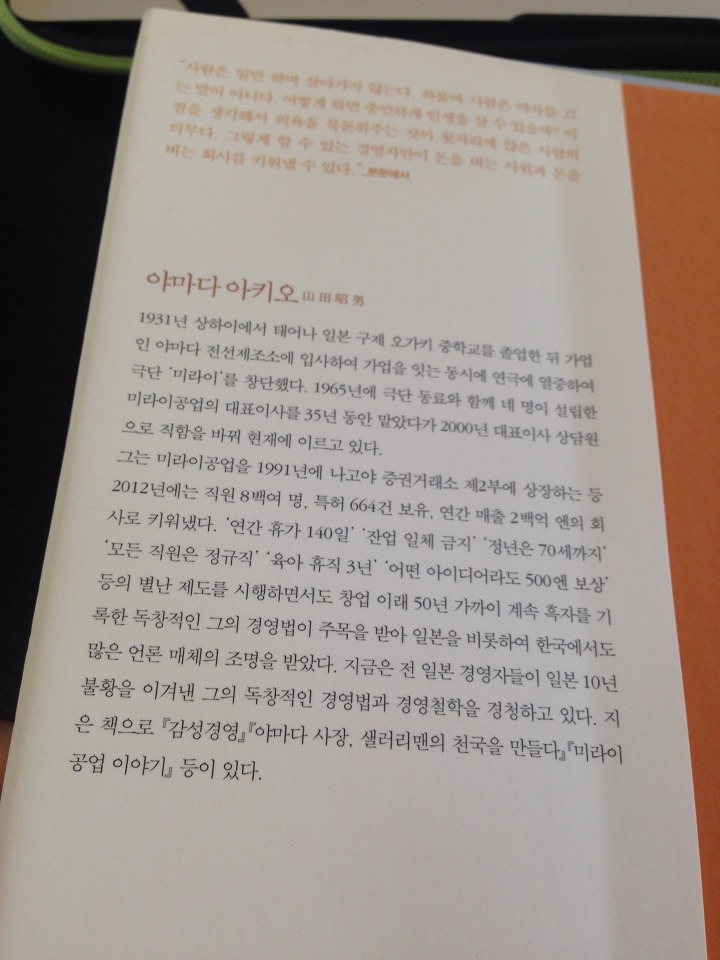 "사람은 일만 하며 살아가지 않는다. 하물며 사람은 마차를 끄
는 말이 아니다. 어떻게 하면 충만하게 인생을 살 수 있을까? 이
점을 생각해서 의욕을 북돋워주는 것이 윗자리에 앉은 사람의
의무다. 그렇게 할 수 있는 경영자만이 돈을 버는 사원과 돈을
버는 회사를 키워낼 수 있다." _본문에서
야마다 아키오 山田昭男
1931년 상하이에서 태어나 일본 구제 오가키 중학교를 졸업한 뒤 가업
인 야마다 전선제조소에 입사하여 가업을 잇는 동시에 연극에 열중하여
극단 '미라이'를 창단했다. 1965년에 극단 동료와 함께 네 명이 설립한
미라이공업의 대표이사를 35년 동안 맡았다가 2000년 대표이사 상담원
으로 직함을 바꿔 현재에 이르고 있다.
그는 미라이공업을 1991년에 나고야 증권거래소 제2부에 상장하는 등
2012년에는 직원 8백여 명, 특허 664건 보유, 연간 매출 2백억 엔의 회
사로 키워냈다. '연간 휴가 140일' '잔업 일체 금지' '정년은 70세까지'
'모든 직원은 정규직' '육아 휴직 3년' '어떤 아이디어라도 500엔 보상'
등의 별난 제도를 시행하면서도 창업 이래 50년 가까이 계속 흑자를 기
록한 독창적인 그의 경영법이 주목을 받아 일본을 비롯하여 한국에서도
많은 언론 매체의 조명을 받았다. 지금은 전 일본 경영자들이 일본 10년
불황을 이겨낸 그의 독창적인 경영법과 경영철학을 경청하고 있다. 지
은 책으로 『감성경영』『야마다 사장, 샐러리맨의 천국을 만들다』『미라이
공업 이야기』 등이 있다.